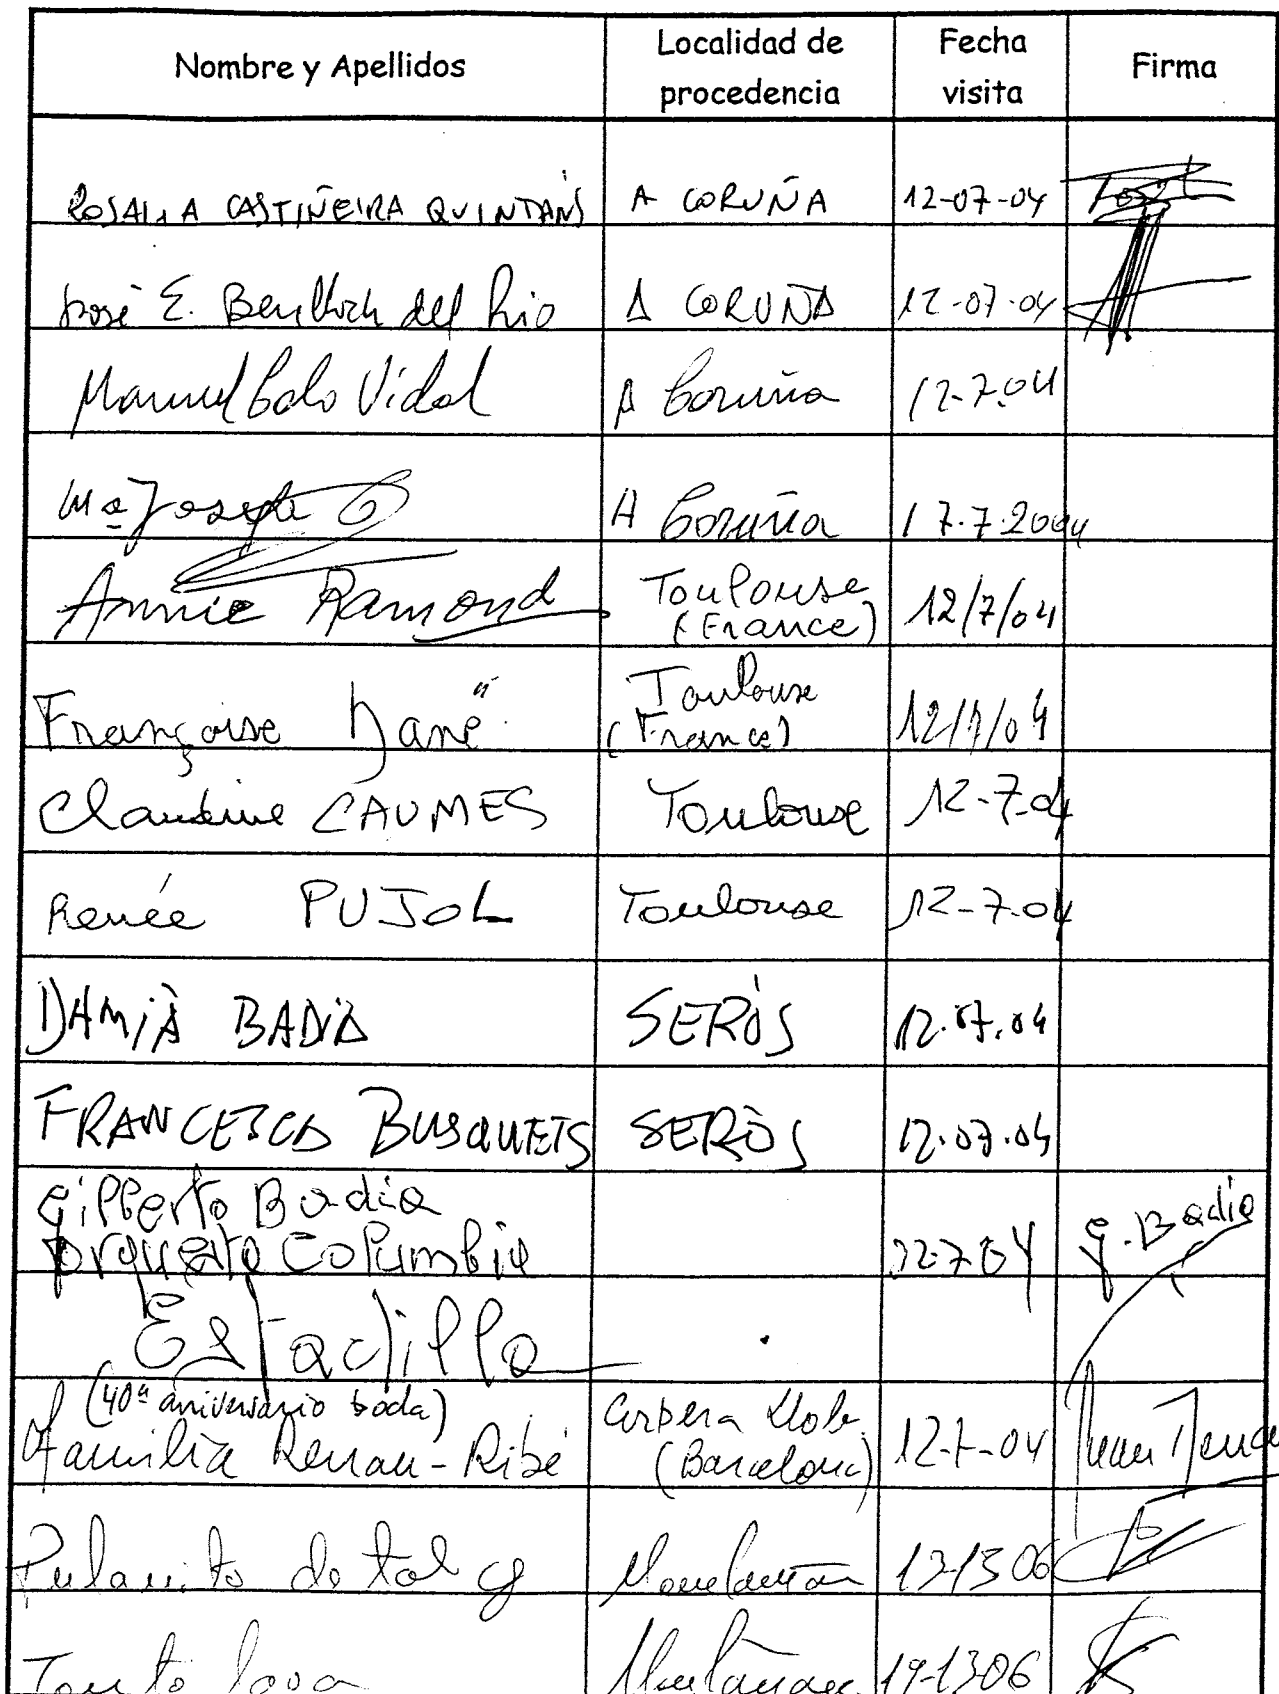 Nombre y Apellidos
Localidad de
procedencia
Fecha
visita
Firma
ROSALIA CASTIÑEIRA QUINTANS A CORUÑA 12-07-04
José E. Benlloch del Rio A CORUÑA 12-07-04
Manuel Calo Vidal A Coruña 12-7-04
Mª Josefa A Coruña 17.7.2004
Annie Ramond Toulouse
(France) 12/7/04
Françoise Toulouse
(France) 12/7/04
Claudine CAUMES Toulouse 12-7-04
Renée PUJOL Toulouse 12-7-04
DAMIÀ BADIA SERÒS 12.07.04
FRANCESCA BUSQUETS SERÒS 12.07.04
Gilberto Badia
Orquesta Columbia 12-7-04 G. Badia
Estadilla
(40º aniversario boda) Corbera Llob.
Familia Renau-Ribé (Barcelona) 12-7-04